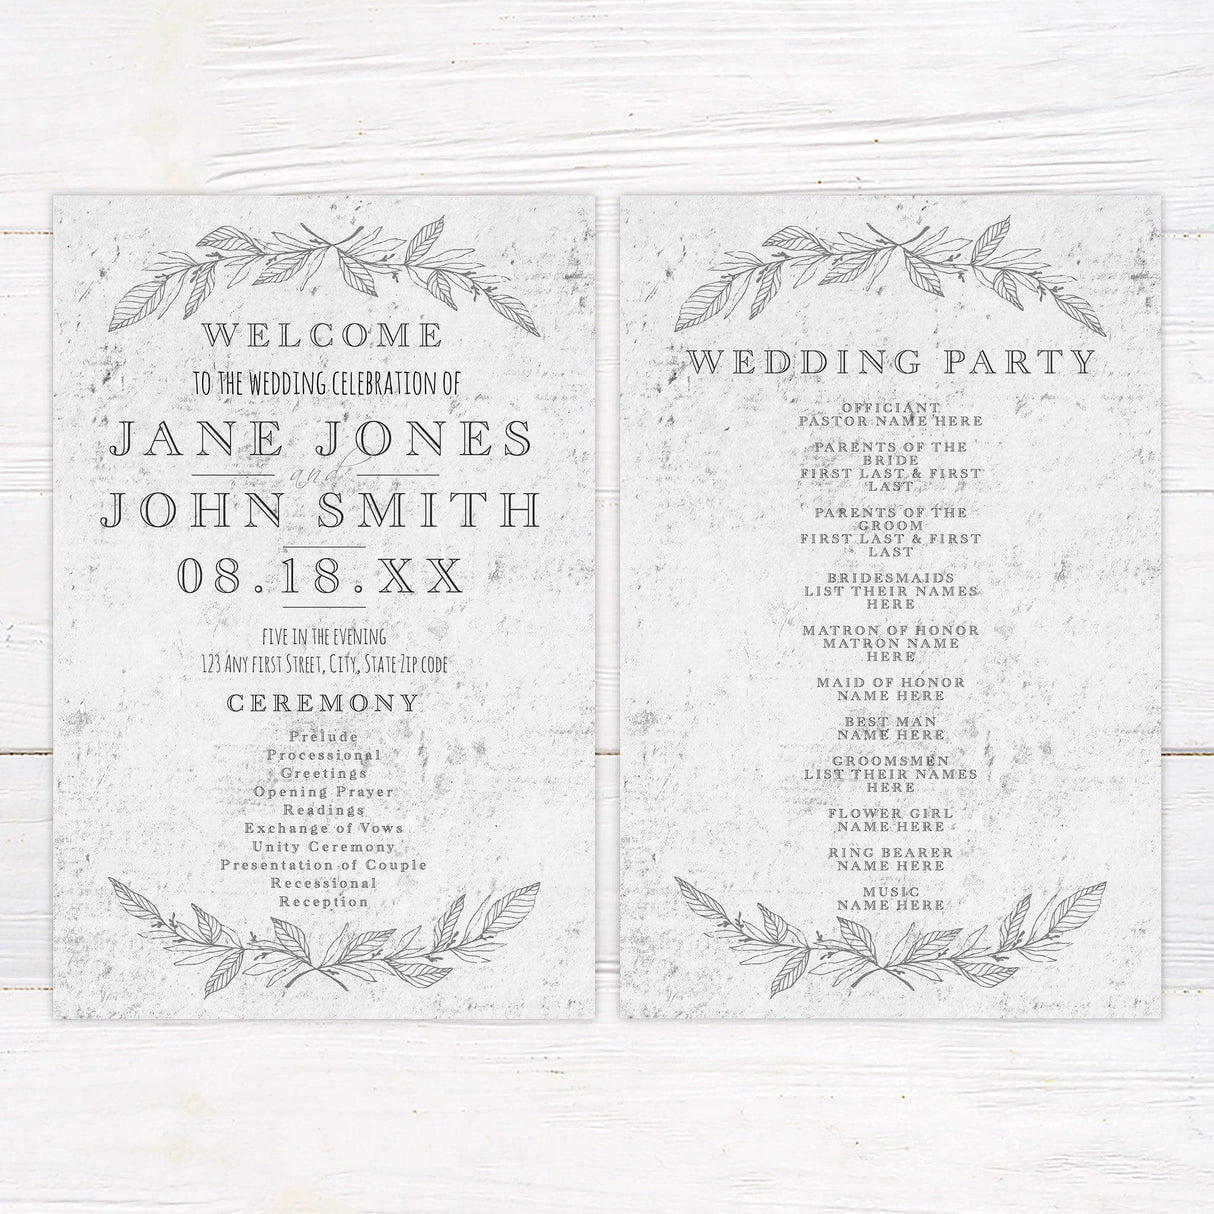 WELCOME
TO THE WEDDING CELEBRATION OF
JANE JONES
and
JOHN SMITH
08.18.XX
FIVE IN THE EVENING
123 ANY FIRST STREET, CITY, STATE ZIP CODE
CEREMONY
Prelude
Processional
Greetings
Opening Prayer
Readings
Exchange of Vows
Unity Ceremony
Presentation of Couple
Recessional
Reception
WEDDING PARTY
OFFICIANT
PASTOR NAME HERE
PARENTS OF THE
BRIDE
FIRST LAST & FIRST
LAST
PARENTS OF THE
GROOM
FIRST LAST & FIRST
LAST
BRIDESMAIDS
LIST THEIR NAMES
HERE
MATRON OF HONOR
MATRON NAME
HERE
MAID OF HONOR
NAME HERE
BEST MAN
NAME HERE
GROOMSMEN
LIST THEIR NAMES
HERE
FLOWER GIRL
NAME HERE
RING BEARER
NAME HERE
MUSIC
NAME HERE